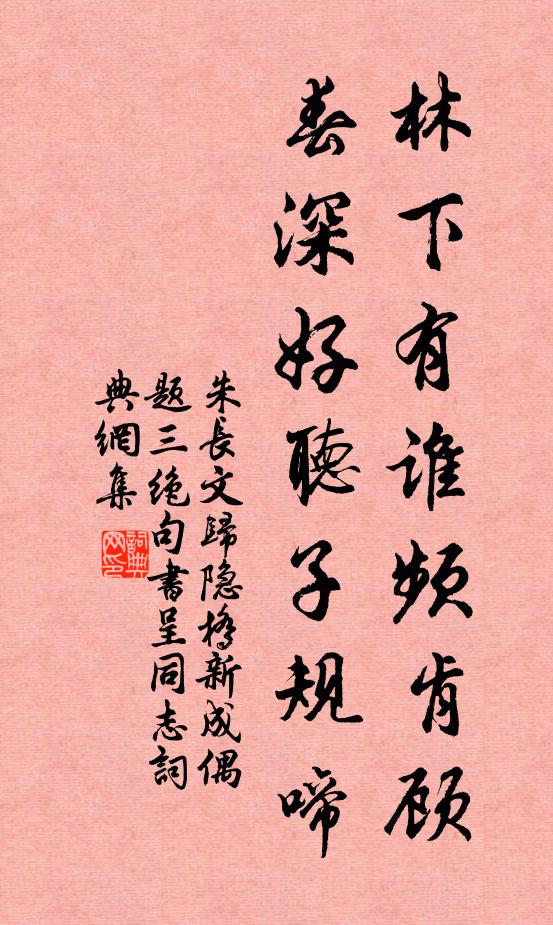 林下有谁频肯顾
春深好聽子規啼
朱長文歸隐橋新成偶
题三绝句書呈同志詞
典網集
詞典网印